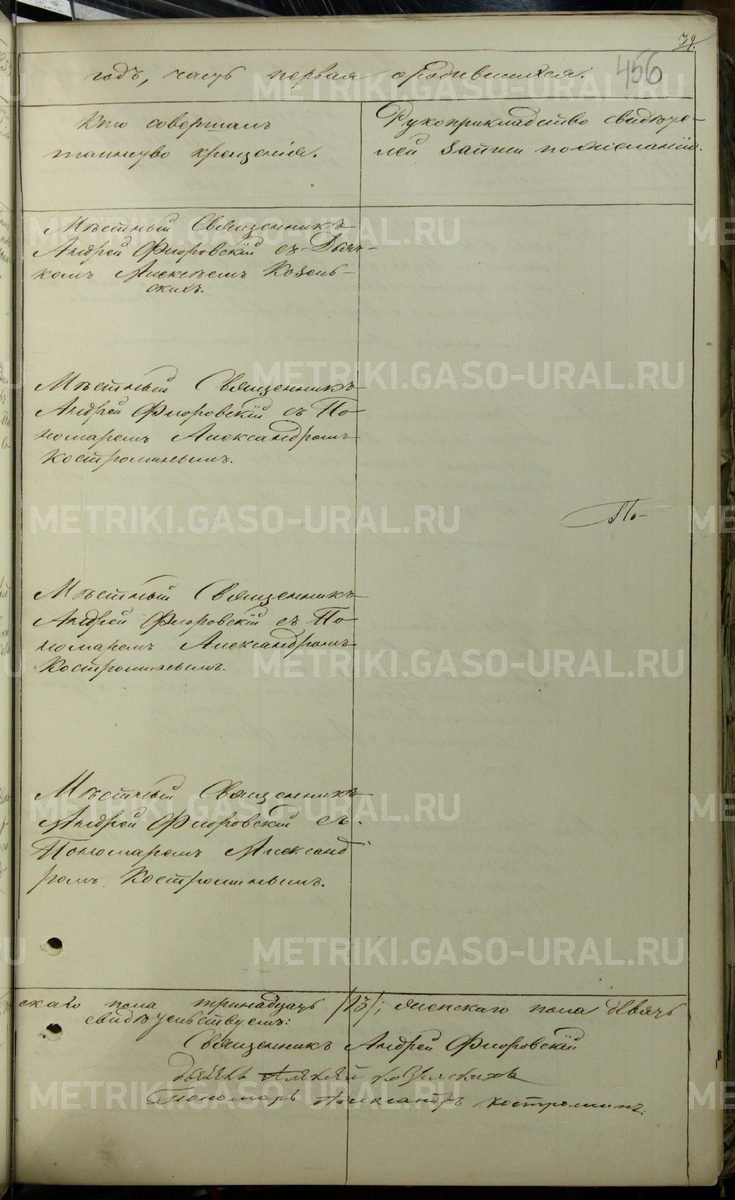 456
годъ, часть первая о родившихся.
Кто совершалъ
таинство крещенія.
Рукоприкладство свидѣте-
лей записи по желанію.
Мѣстный Священникъ
Андрей Флоровскій съ Дьяч-
комъ Алексѣемъ Козель-
скихъ.
Мѣстный Священникъ
Андрей Флоровскій съ По-
номаремъ Александромъ
Костроминымъ.
По-
Мѣстный Священникъ
Андрей Флоровскій съ По-
номаремъ Александромъ
Костроминымъ.
Мѣстный Священникъ
Андрей Флоровскій съ
Пономаремъ Александ
ромъ Костроминымъ.
скаго пола тринадцать /13/; женскаго пола девять
свидѣтельствуемъ:
Священникъ Андрей Флоровскій
Дьячекъ Алексѣй Козельскихъ
Пономарь Александръ Костроминъ.
METRIKI.GASO-URAL.RU